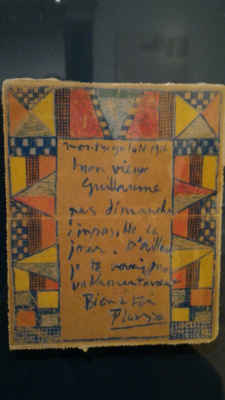 montrouge 16N 1916
mon vieux
Guillaume
pas dimanche
impossible ce
jour. D'ailleurs
je te verrai pro
bablement avant
Bien à toi
Picasso